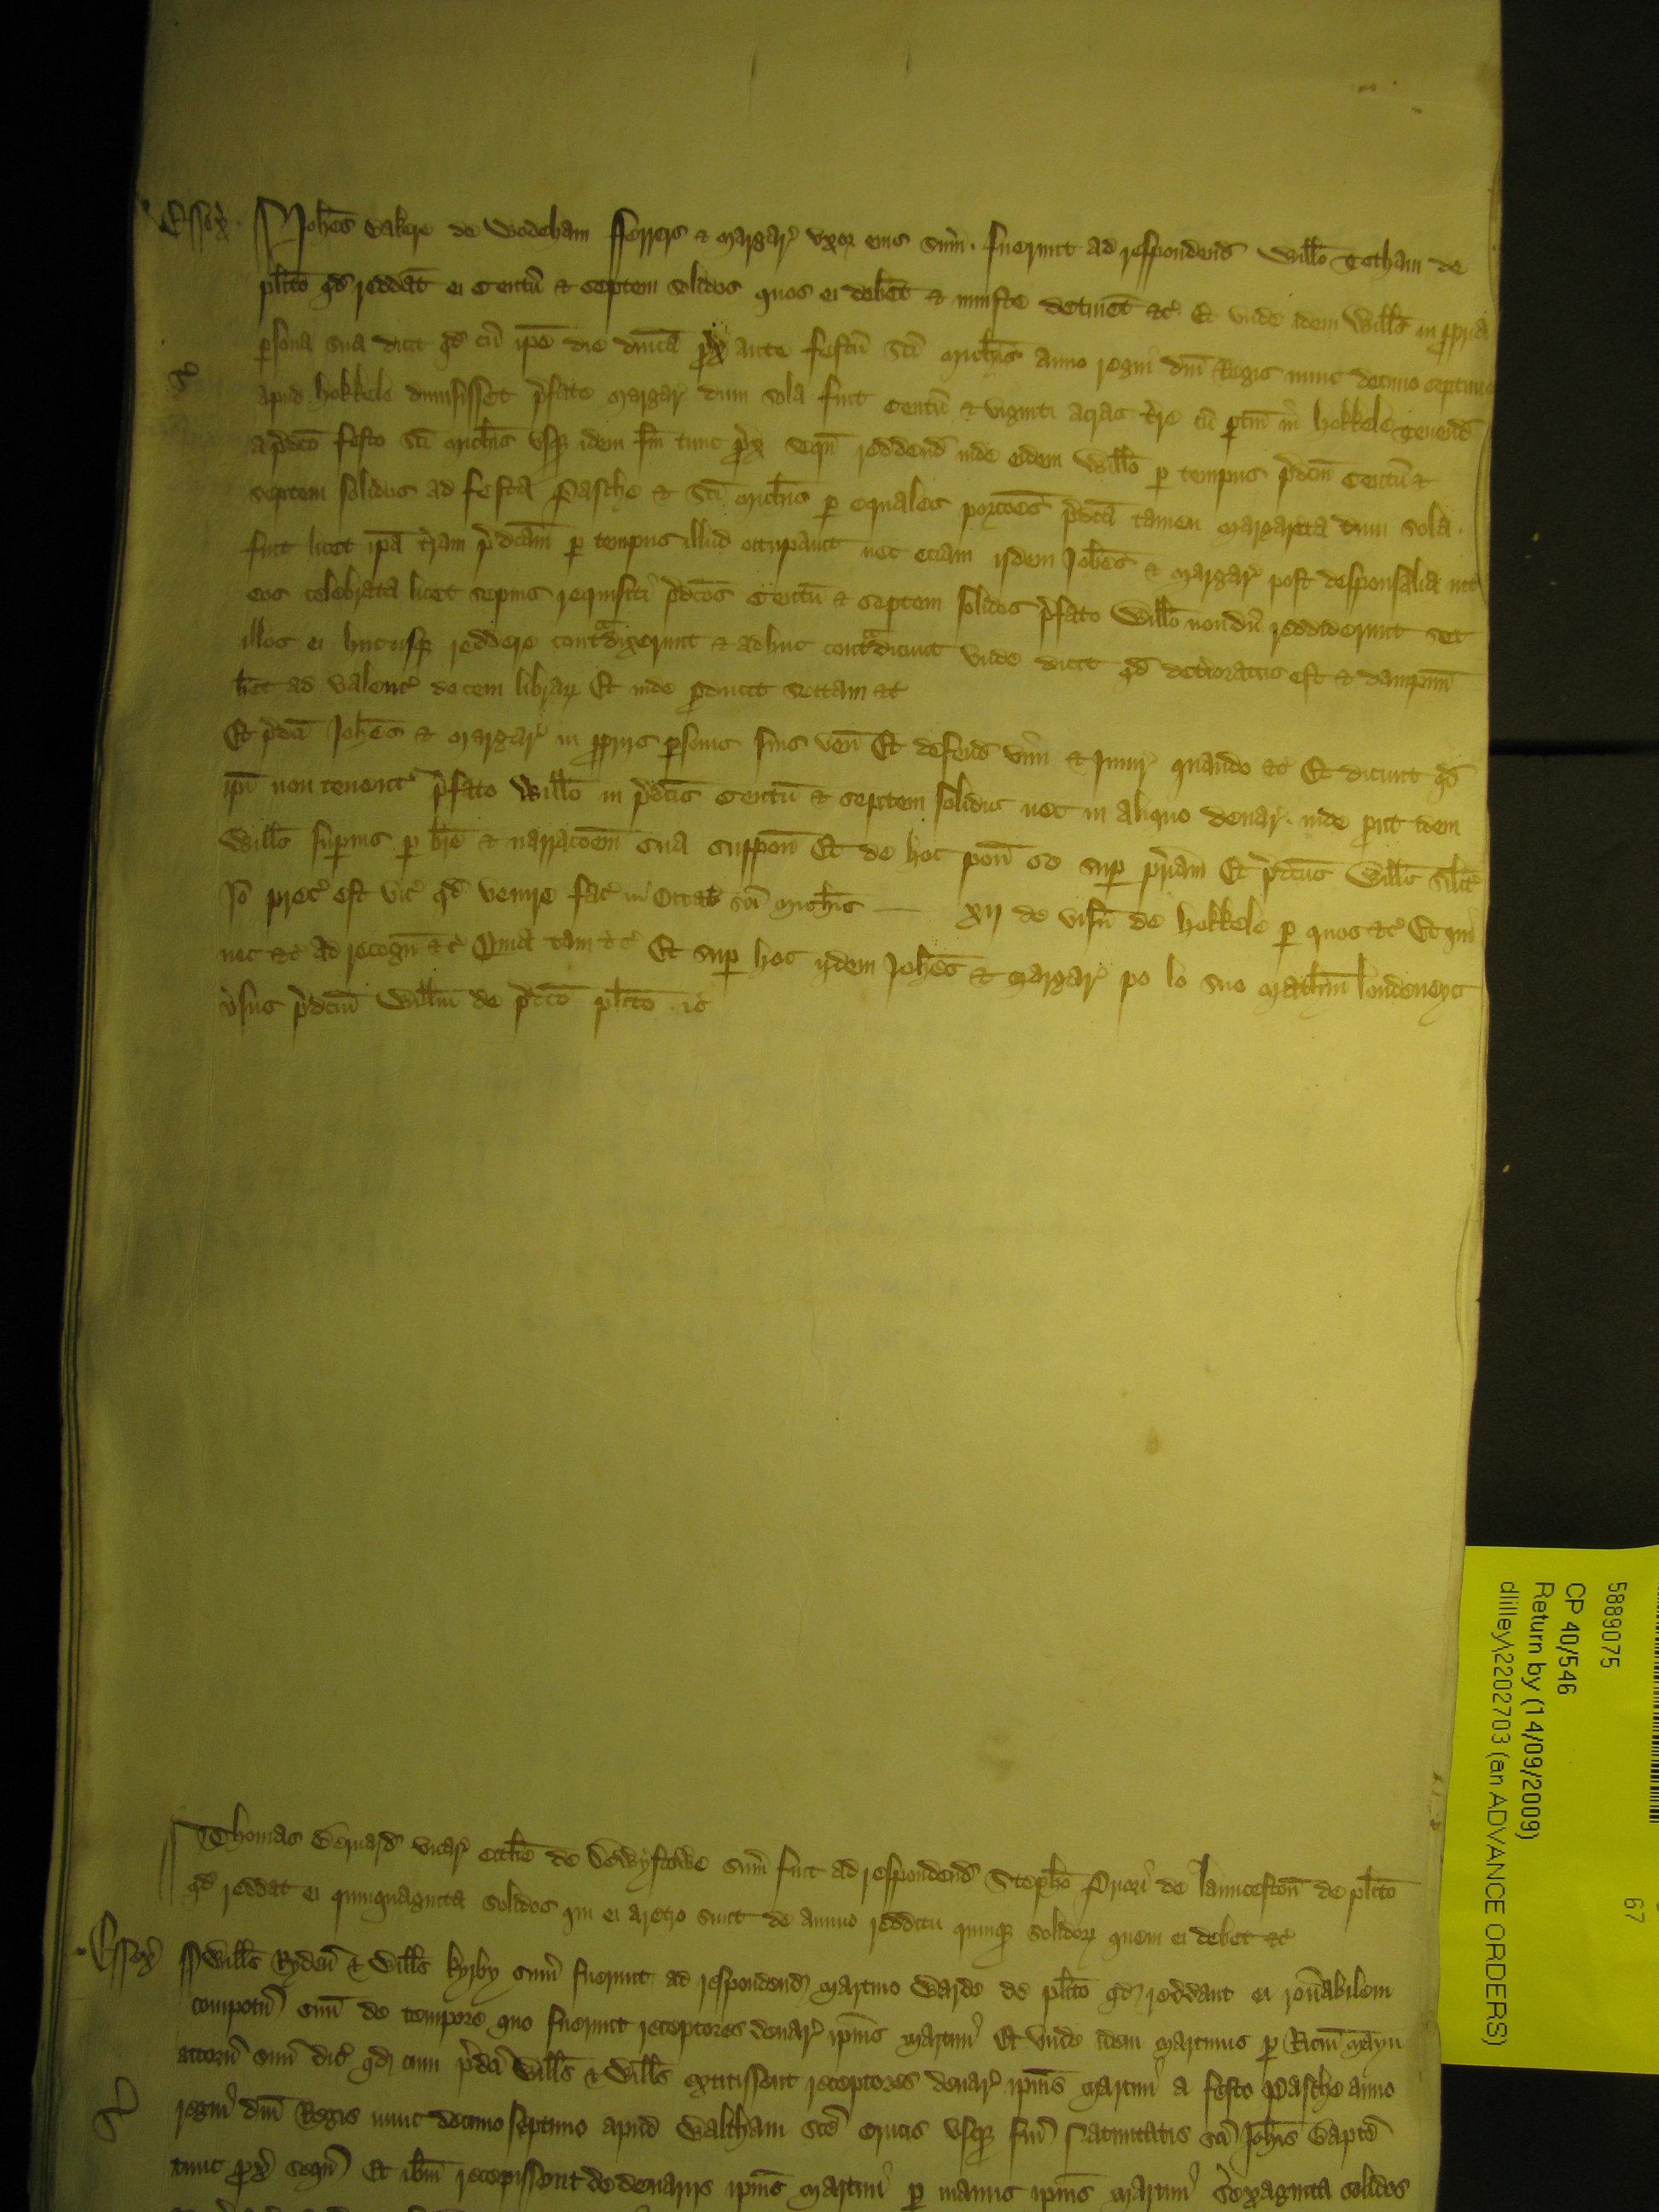 Essex Johes Bakere de Wodeham fferrers & Margar' uxor eius sum' fuerunt ad respondend' Willo Totham de
plito qd reddat ei Centu & septem solidos quos ei debet & iniuste detinet &c' Et unde idem Wills in propria
persona sua dicit qd cu ipe die dnica prox ante festu Sci Michis anno regni dni Regis nunc decimo septimo
apud Hokkele dimisisset prefate Margar' dum sola fuit Centu & viginti acras tre cu ptin in Hokkele Tenend'
a predco festo Sci Michis usq idem fm tunc prox sequ reddend' inde eidem Willo per tempus predcm Centu &
septem solidos ad festa Pasche & Sci Michis per equales porcoes predca tamen Margareta dum sola
fuit licet ipa terram predcam per tempus illud occupavit nec eciam ijdem Johes & Margar' post desponsalia int
eos celebrata licet sepius requisiti predcos Centu & septem solidos prefato Willo nondu reddiderunt set
illos ei hucusq reddere contradixerunt & adhuc contradicunt unde dicit qd deterioratus est & dampnu
het ad valenc' decem librar Et inde producit sectam &c
Et predci Johes & Margar' in propriis personis suis ven Et defend' vim & Iniur' quando &c' Et dicunt qd
ipi non tenent' prefato Willo in predcis Centu & septem solidis nec in aliquo denar' inde prout idem
Wills superius per bre & narracoem sua suppon Et de hoc pon se sup priam Et predcus Wills silit'
Io prec' est vic' qd venire fac' in Octab' sci Michis — xij de visn de Hokkele per quos &c' Et qui
nec &c' ad recogn &c' Quia tam &c' Et sup hoc ijdem Johes & Margar' po lo suo Mathm Londoneys
vsus predcm Willm de predco plito &c'
Thomas Bernard vicar' ecclie de sum' fuit ad respondend' Stepho Priori de Launceston de plito
qd reddat ei quinquaginta solidos qui ei aretro sunt de annuo redditu quinq solidor quem ei debet &c'
Essex Wills Ryden & Wills Kyrby sum' fuerunt ad respondend' Martino Warde de plito qd reddant ei ronabilem
compotu suu de tempore quo fuerunt receptores denar' ipius Martini Et unde idem Martinus per Ricm Mayn
attorn suu dic' qd cum predci Wills & Wills extitissent receptores denar' ipius Martini a festo Pasche anno
regni dni Regis nunc decimo septimo apud Waltham sce Crucis usq fm Nativitatis sci Johis Bapte
tunc prox sequ Et ibm recepissent de denariis ipius Martini per manus ipius Martini Sexaginta solidos
5889075
67
CP 40/546
Return by (14/09/2009)
dlilley\2202703 (an ADVANCE ORDERS)